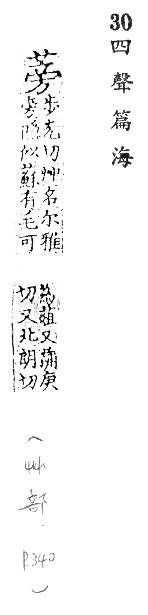 30 四聲篇海
蒡
步光切艸名尔雅
蒡隱似蘇有毛可
為葅又 庚
切又北朗切
(艸部 P.340)